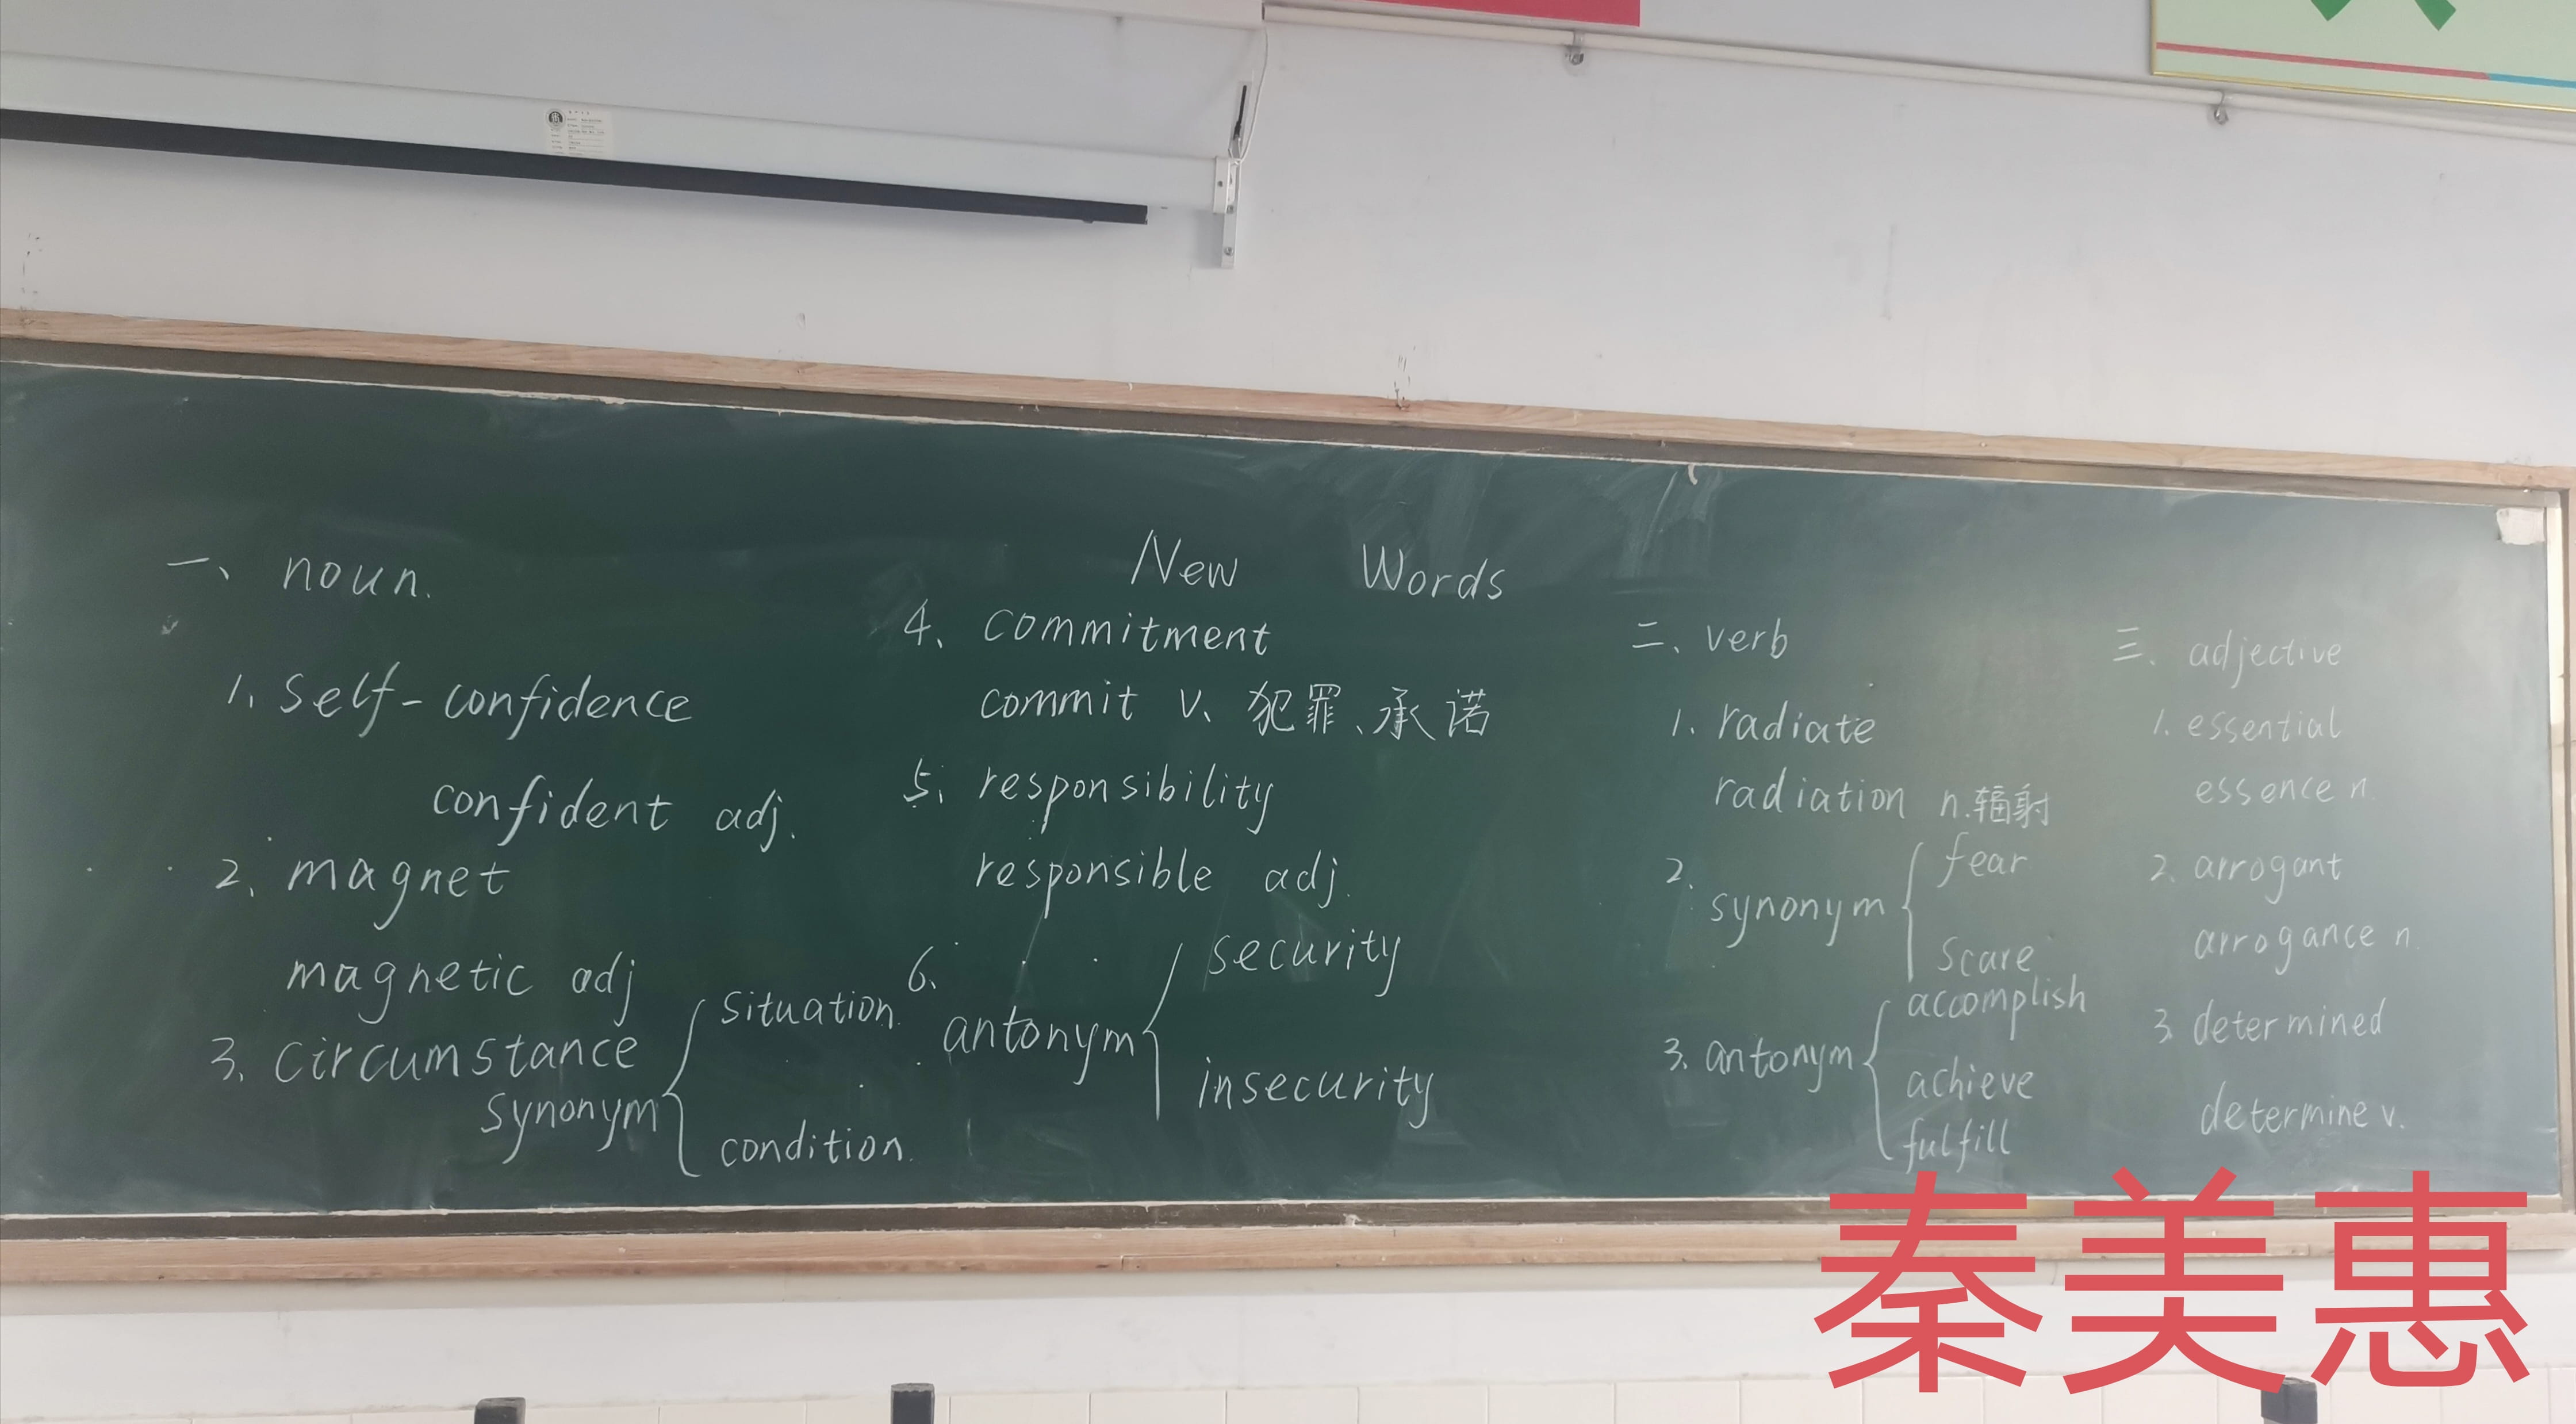 New Words
一、 noun.
1. self-confidence
confident adj.
2. magnet
magnetic adj
3. circumstance
synonym
situation.
condition.
4、 commitment
commit v、 犯罪、承诺
5. responsibility
responsible adj.
6.
antonym
security
insecurity
二、verb
1. radiate
radiation n.辐射
2.
synonym
fear
scare
3. antonym
accomplish
achieve
fulfill
三、adjective
1. essential
essence n.
2. arrogant
arrogance n.
3. determined
determine v.
秦美惠